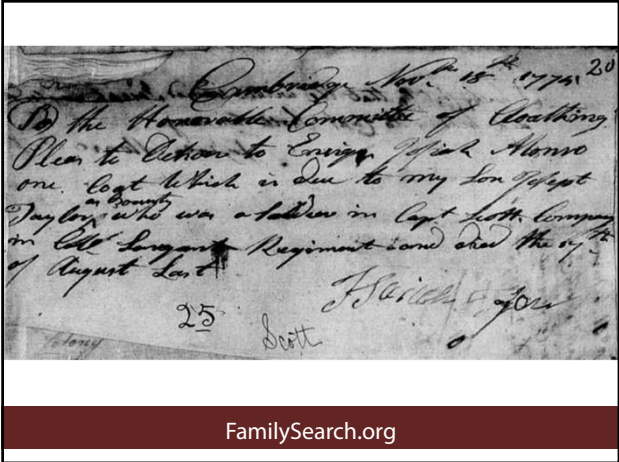 20
Cambridge Novr 18th 1775
To the Honorable Committe of Cloathing
Pleas to Deliver to Ensign Josiah Monro
one Coat Which is due to my Son
as bounty
Taylor who was a in Capt Scott Company
in Colo Sargant Regiment and died the
of August Last
Isaiah
25
Scott
Colony
FamilySearch.org